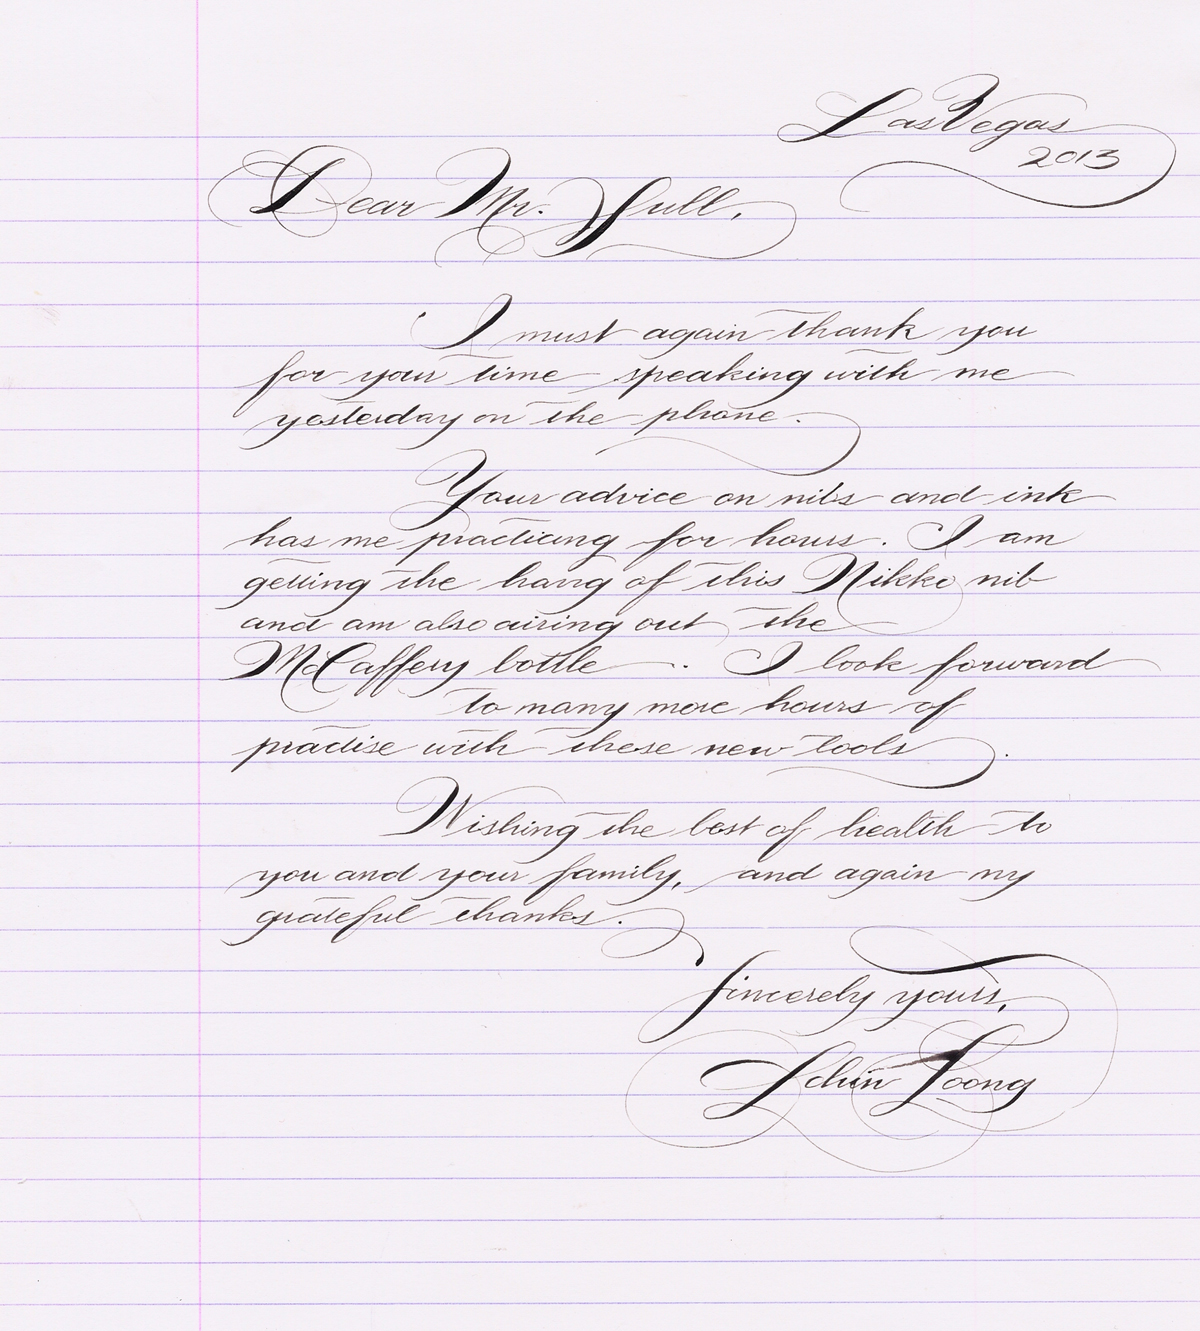 Las Vegas
2013
Dear Mr. Hull,
I must again thank you
for your time speaking with me
yesterday on the phone.
Your advice on nibs and ink
has me practicing for hours. I am
getting the hang of this Nikko nib
and am also airing out the
McCaffery bottle. I look forward
to many more hours of
practise with these new tools.
Wishing the best of health to
you and your family, and again my
grateful thanks.
Sincerely yours,
Schin Loong